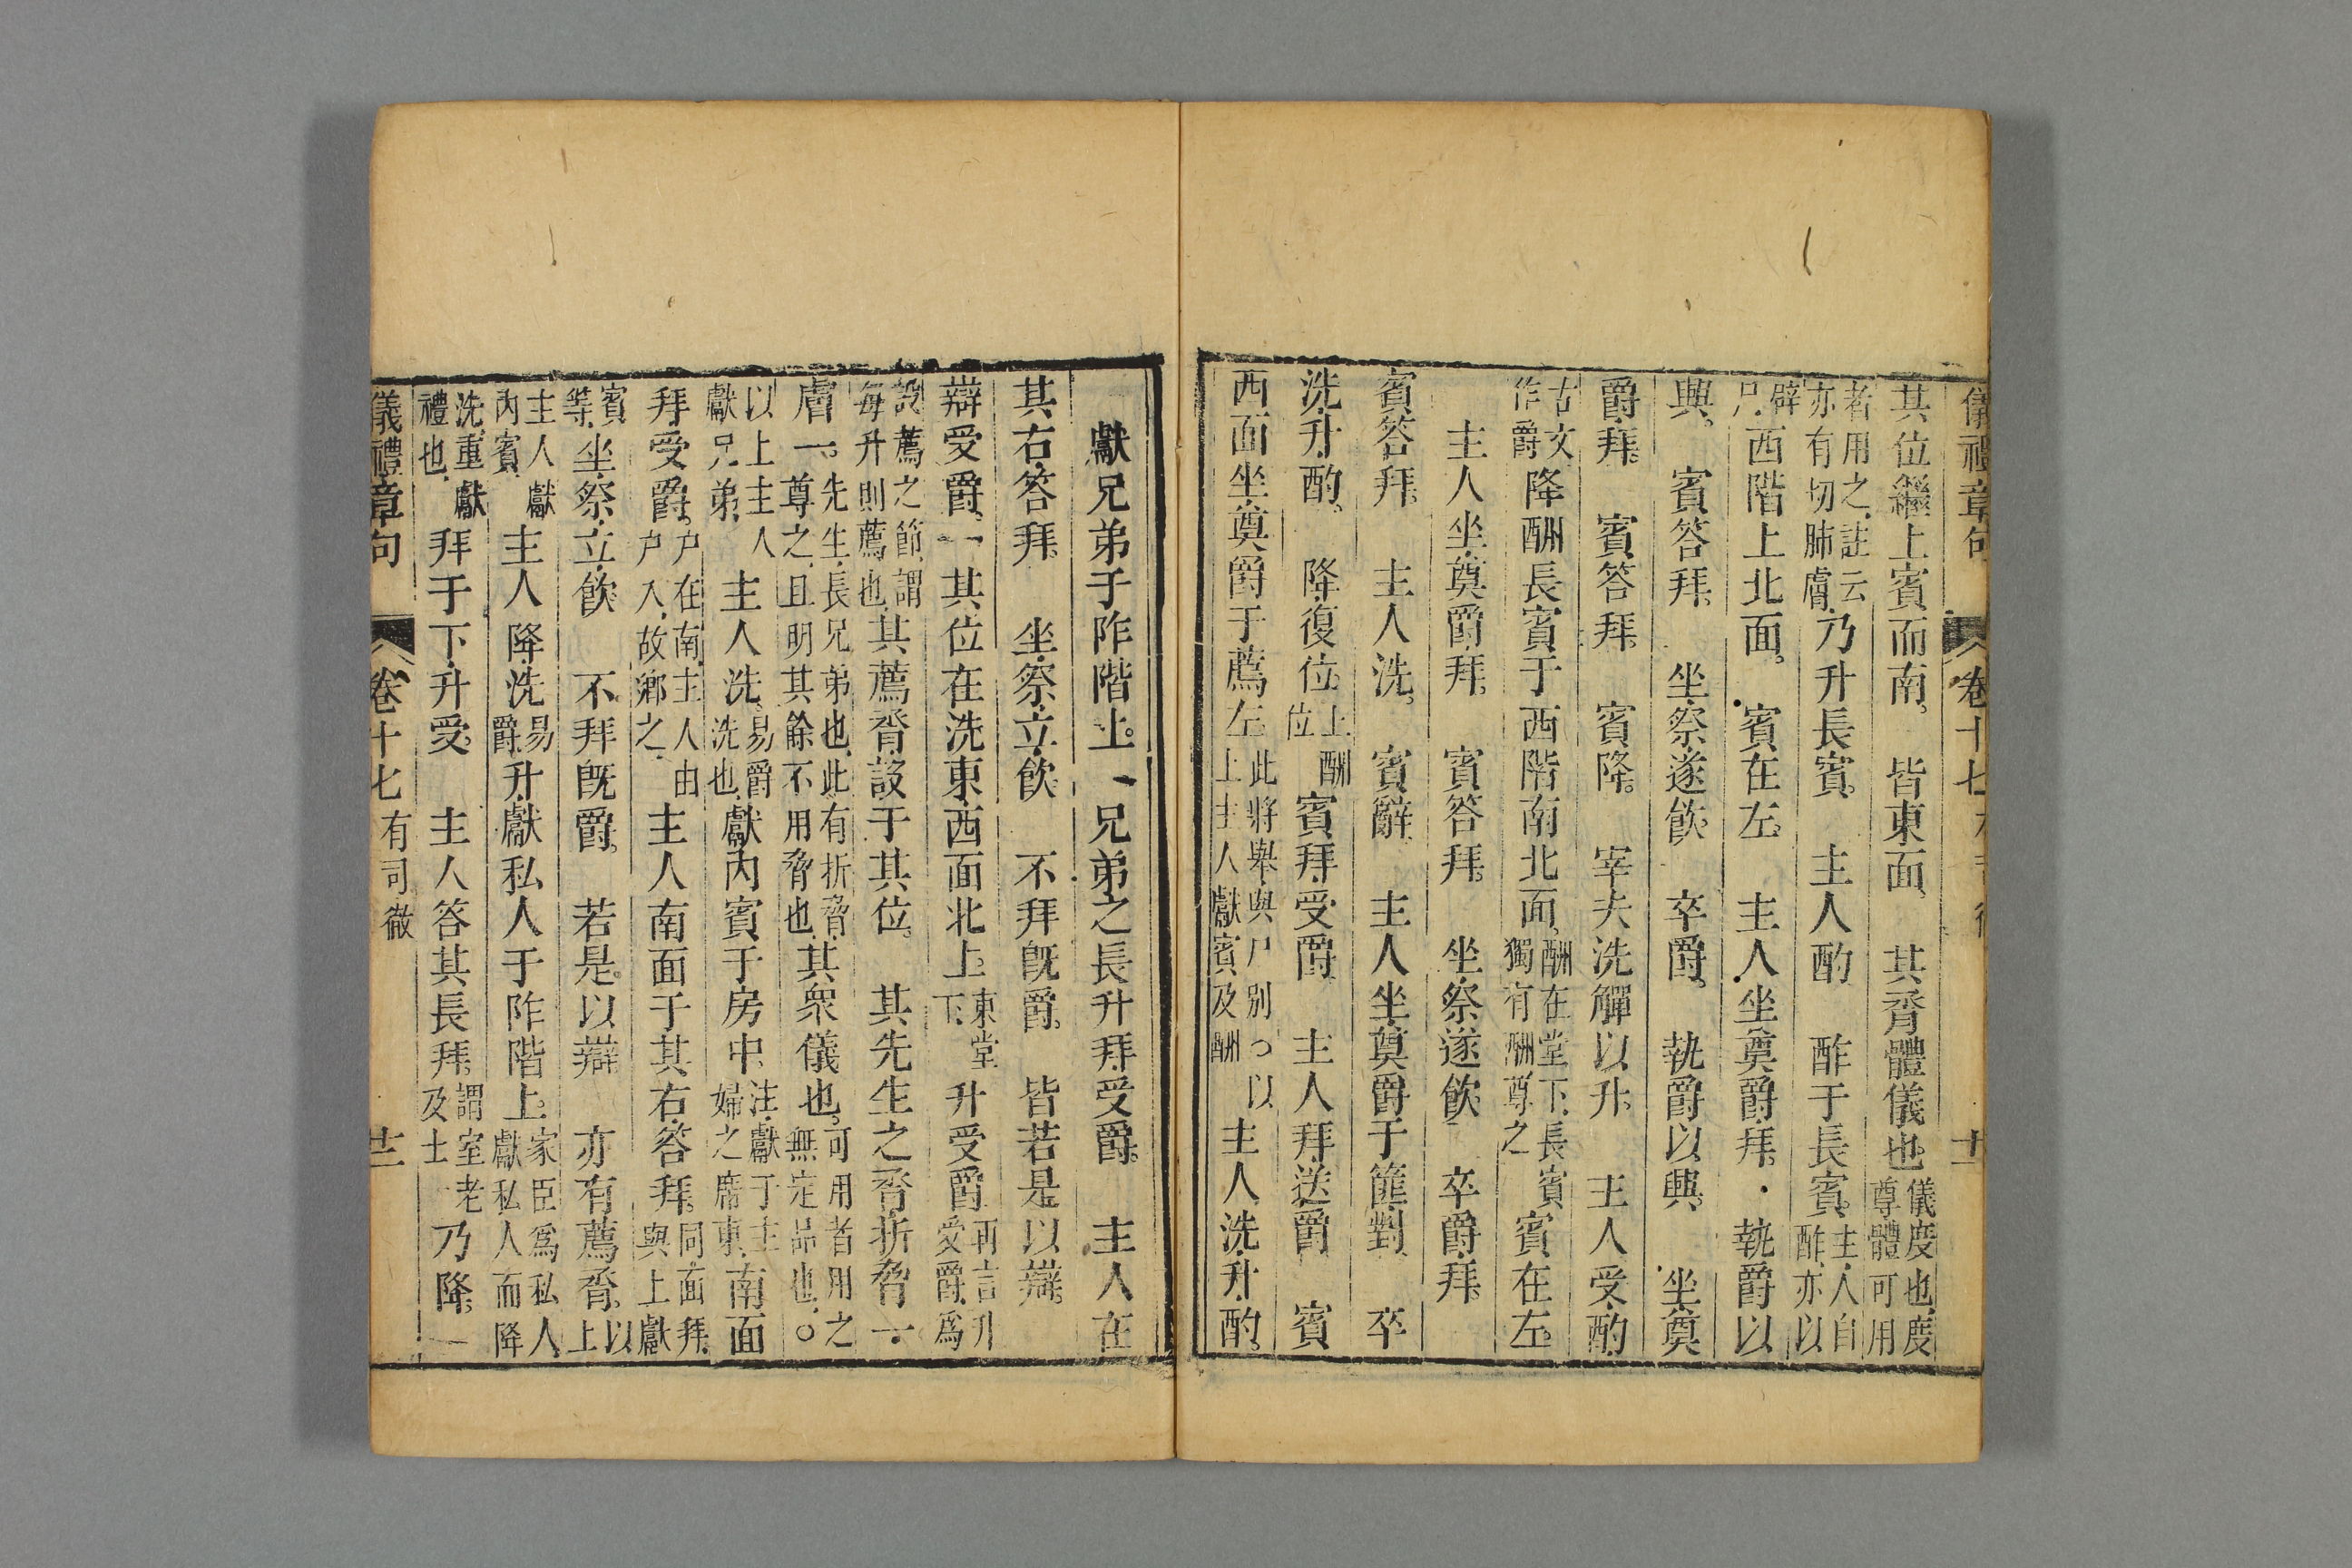 儀禮章句 卷十七
其位繼上賓而南。 皆東面。 其脀體儀也。儀度也度尊體可用
者用之。註云亦有切肺膚。乃升長賓。 主人酌 酢于長賓。主人自酢亦以
辟尸。西階上北面。 賓在左。 主人坐奠爵拜。 執爵以
興。 賓答拜。 坐祭遂飲。 卒爵。 執爵以興。 坐奠
爵拜。 賓答拜。 賓降。 宰夫洗觶以升。 主人受酌
古文作爵降酬長賓于西階南北面。酬在堂下長賓獨有酬尊之賓在左。
主人坐奠爵拜。 賓答拜。 坐祭遂飲 卒爵拜。
賓答拜。 主人洗。 賓辭。 主人坐奠爵于篚對 卒
洗升酌。 降復位。上酬位賓拜受爵 主人拜送爵 賓
西面坐奠爵于薦左。此將舉與尸別。以上主人獻賓及酬主人洗升酌。
獻兄弟于阼階上。 兄弟之長升拜受爵。 主人在
其右答拜。 坐祭立飲 不拜既爵。 皆若是以辯。
辯受爵。 其位在洗東西面北上。東堂下。升受爵再言升受爵爲
設薦之節謂每升則薦也其薦脀設于其位。 其先生之脀折脅一
膚一。先生長兄弟也此有折脅尊之且明其餘不用脅也其衆儀也。可用者用之無定品也。○
以上主人獻兄弟主人洗。易爵洗也獻內賓于房中。注獻于主婦之席東南面
拜受爵。戶在南主人由戶入故鄉之。主人南面于其右答拜。同面拜與上獻
賓等坐祭立飲 不拜既爵。 若是以辯 亦有薦脀。以上
主人獻內賓主人降洗易爵升獻私人于阼階上。家臣爲私人獻私人而降
洗重獻禮也拜于下升受。 主人答其長拜。謂室老及士乃降。
儀禮章句 卷十七 有司徹